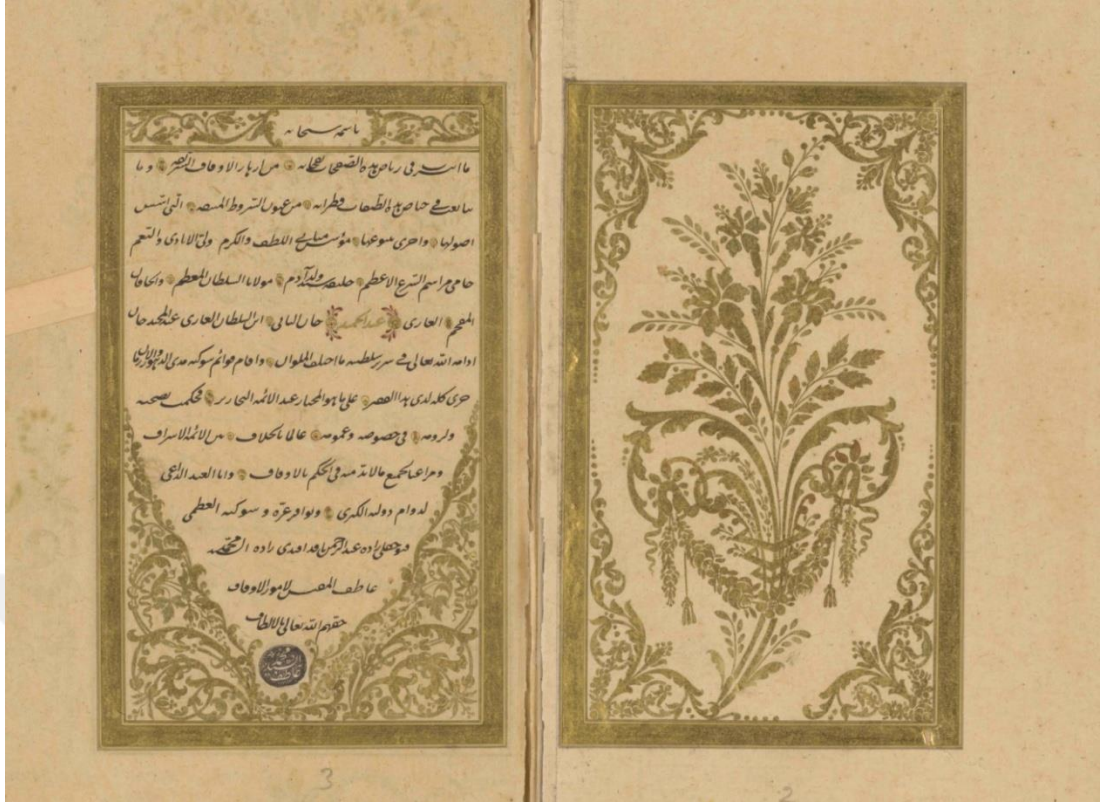 باسمه سبحانه
في رياض هذه الصفحات من ازهار الاوقاف وما
في حياض هذه الصفحات قطراته من عيون الشروط التي اسس
اصولها واجرى ينبوعها مؤسس مباني اللطف والكرم ولي الايادي والنعم
حامي مراسم الشرع الاعظم ولد آدم مولانا السلطان المعظم والخاقان
المفخم الغازي عبد الحميد خان الثاني ابن السلطان الغازي عبد المجيد خان
ادامه الله تعالى في سرير سلطنته ما اختلف الملوان واقام قوائم شوكته مدى الدهور والازمان
جرى كله لدى هذا الفقير على ما هو المختار عند الائمة النحارير فحكمت بصحته
ولزومه في خصوصه وعمومه عالما بالخلاف بين الائمة
ومراعيا لجميع ما لا بد منه في الحكم بالاوقاف وانا العبد الداعي
لدوام دولته الكبرى وتوافر عزه وشوكته العظمى
زاده عبد الرحمن نافذ افندي زاده السيد محمد
عاطف المفتش لامور الاوقاف
حفهم الله تعالى بالالطاف
السيد محمد عاطف
3
2